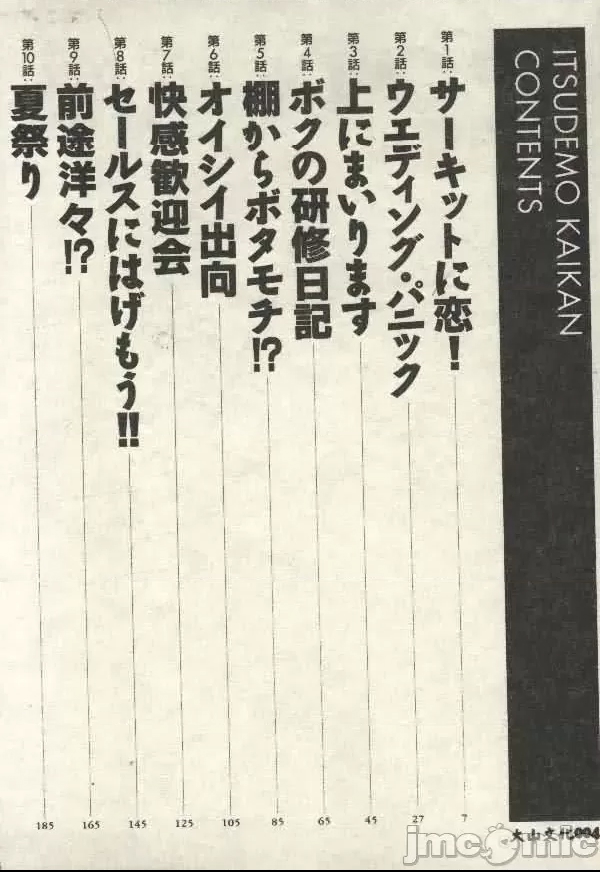 ITSUDEMO KAIKAN
CONTENTS
第1話:サーキットに恋! 7
第2話:ウエディング・パニック 27
第3話:上にまいります 45
第4話:ボクの研修日記 65
第5話:棚からボタモチ!? 85
第6話:オイシイ出向 105
第7話:快感歓迎会 125
第8話:セールスにはげもう!! 145
第9話:前途洋々!? 165
第10話:夏祭り 185
大山文化004
jmcomic